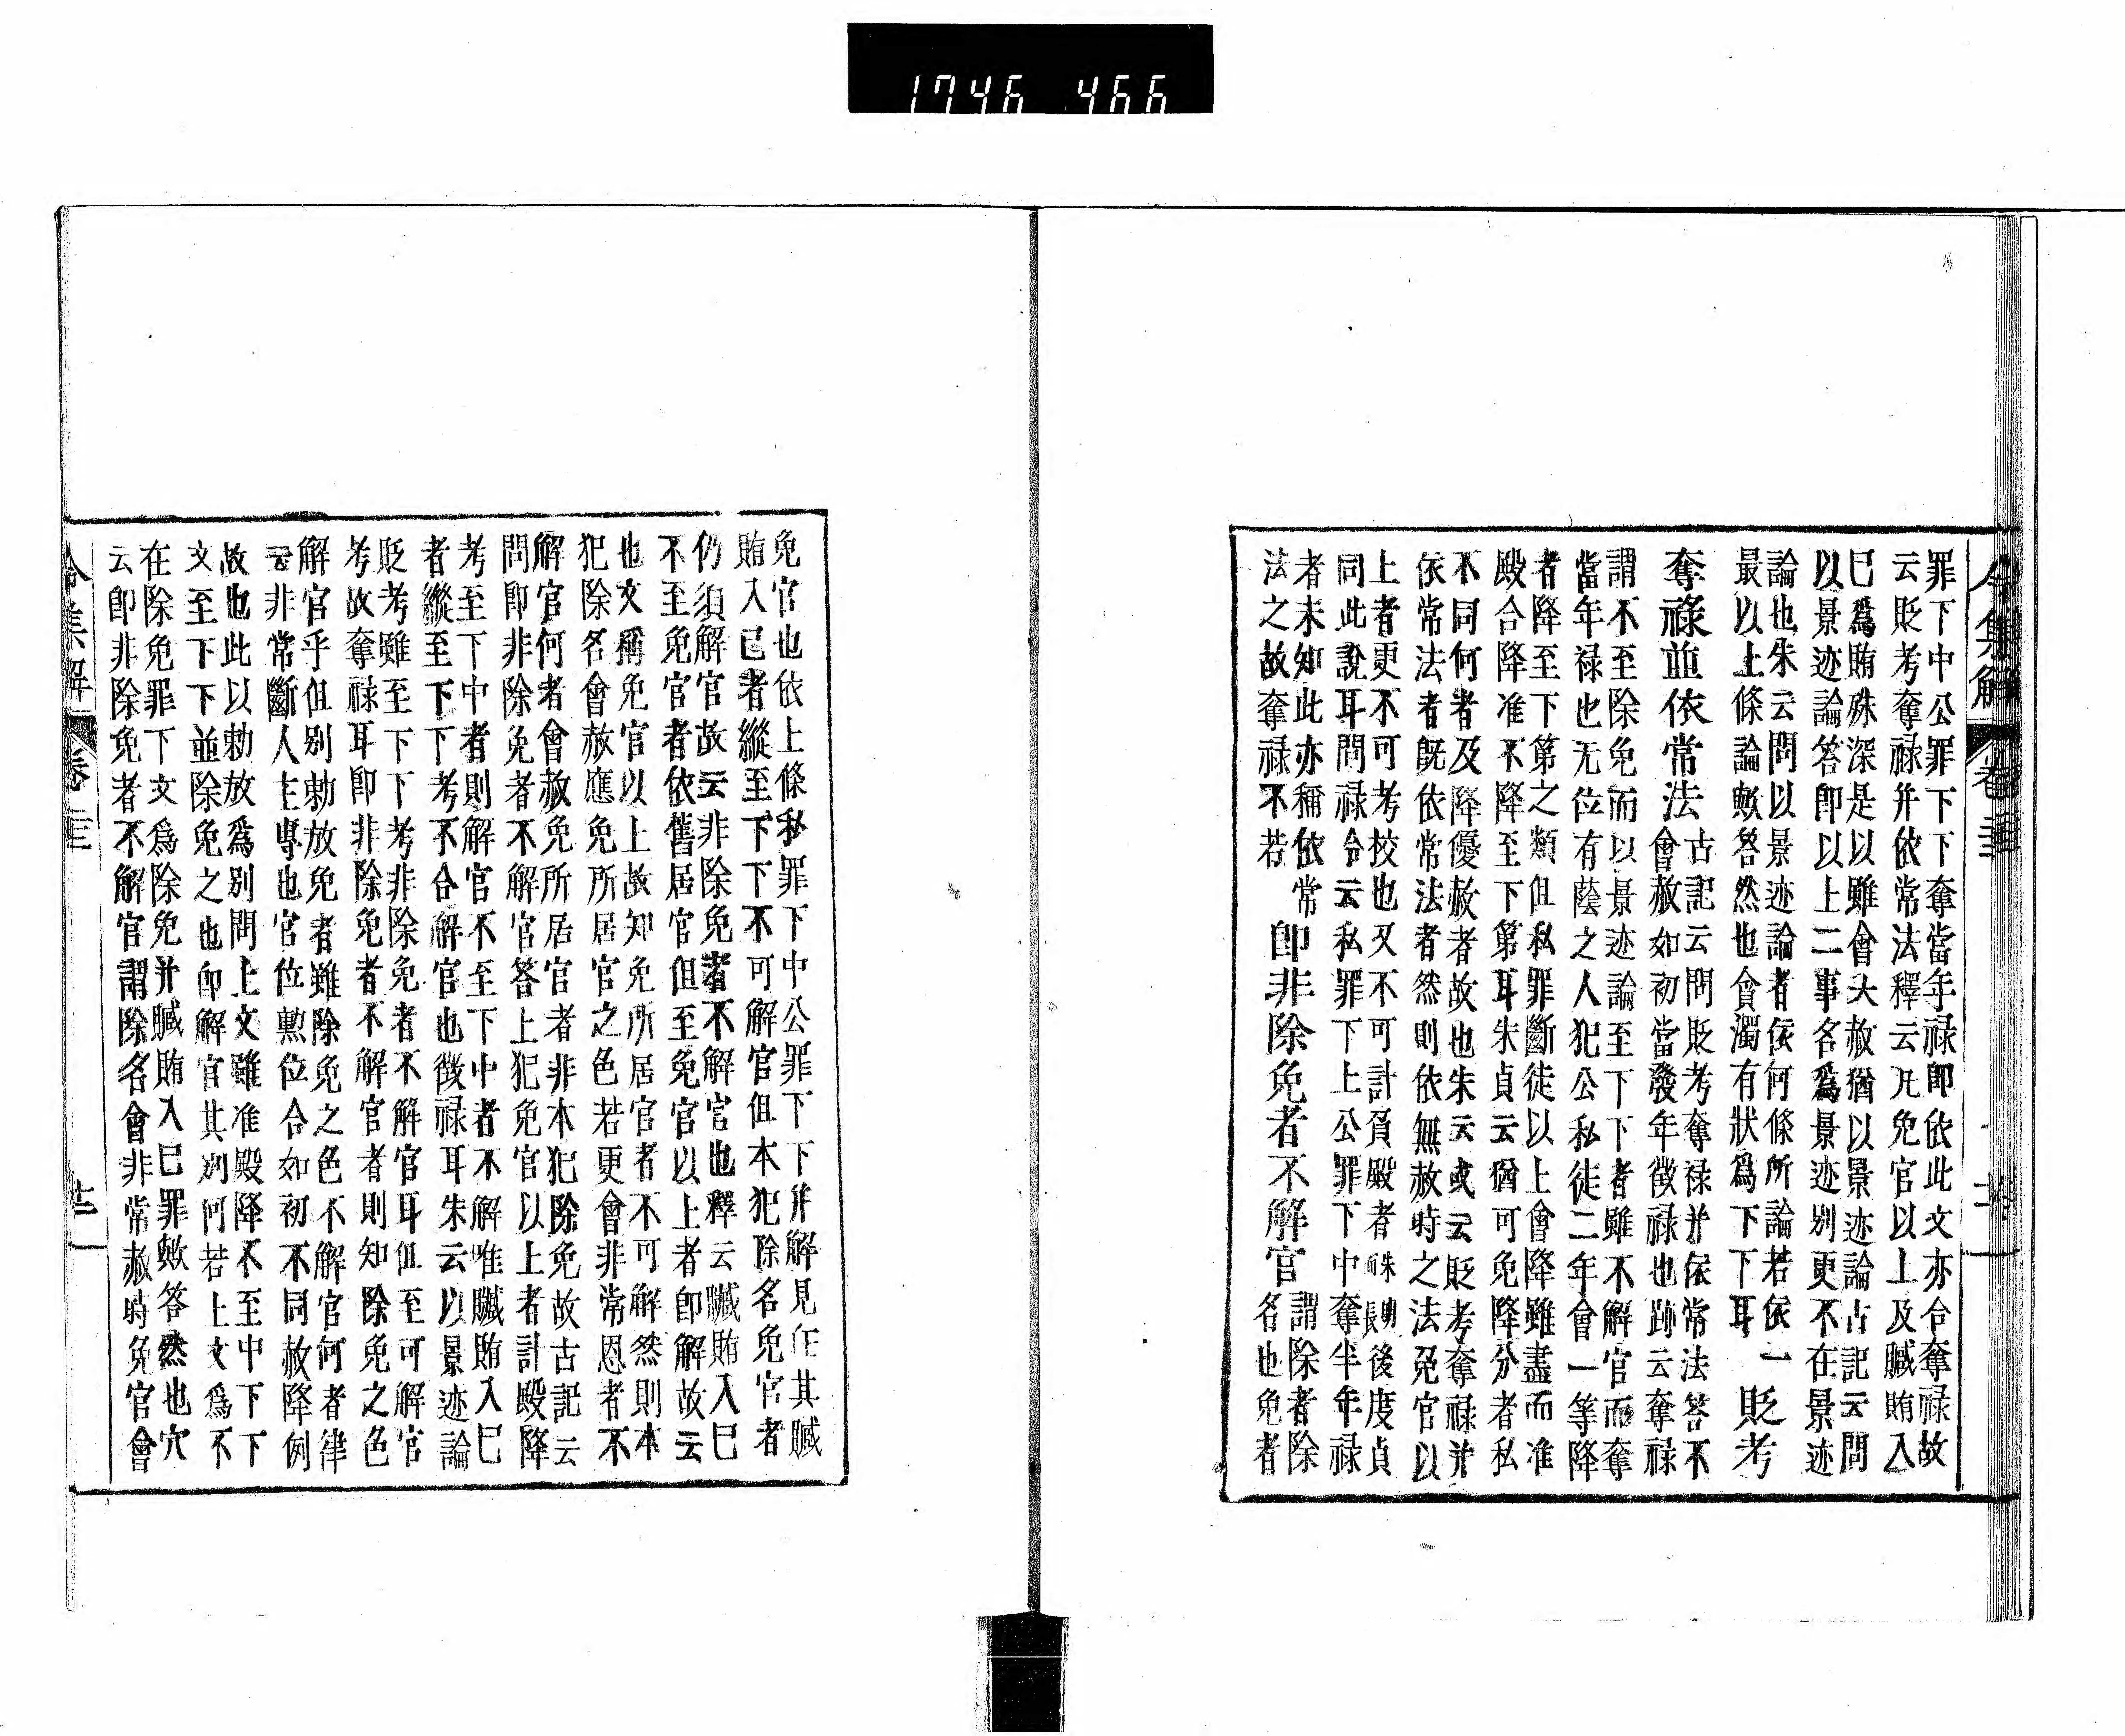 1746 466
罪下中公罪下下奪當年禄即依此文亦合奪禄故
云貶考奪禄并依常法釋云凡免官以上及贓賄入
巳爲賄殊深是以雖會大赦猶以景迹論古記云問
以景迹論答即以上二事名爲景迹別更不在景迹
論也朱云問以景迹論者依何條所論若依一
最以上條論歟答然也貪濁有狀爲下下耳 貶考
奪祿並依常法
古記云問貶考奪禄并依常法答不
會赦如初當發年徴禄也跡云奪禄
謂不至除免而以景迹論至下下者雖不解官而奪
當年禄也无位有蔭之人犯公私徒二年會一等降
者降至下第之類但私罪斷徒以上會降雖盡而准
殿合降准不降至下第耳朱貞云猶可免降分者私
不同何者及降優赦者故也朱云或云貶考奪禄并
依常法者旣依常法者然則依無赦時之法免官以
上者更不可考校也又不可計負殿者後度貞
同此說耳問禄令云私罪下上公罪下中奪半年禄
者未知此亦稱依常
法之故奪禄不若
即非除免者不解官
謂除者除
名也免者
免官也依上條私罪下中公罪下下并解見任其贓
賄入已者縱至下下不可解官但本犯除名免官者
仍須解官故云非除免者不解官也釋云贓賄入巳
不至免官者依舊居官但至免官以上者即解故云
也文稱免官以上故知免所居官者不可解然則本
犯除名會赦應免所居官之色若更會非常恩者不
解官何者會赦免所居官者非本犯除免故古記云
問即非除免者不解官答上犯免官以上者計殿降
考至下中者則解官不至下中者不解唯贓賄入巳
者縱至下下考不合解官也徴禄耳朱云以景迹論
貶考雖至下下考非除免者不解官耳但至可解官
考故奪禄耳即非除免者不解官者則知除免之色
解官乎但別勅放免者雖除免之色不解官何者律
云非常斷人主專也官位勲位合如初不同赦降例
故也此以勅放爲別問上文雖准殿降不至中下下
文至下下並除免之也即解官其別何若上文爲不
在除免罪下文爲除免并贓賄入巳罪歟答然也穴
云即非除免者不解官謂除名會非常赦時免官會
令集解 卷